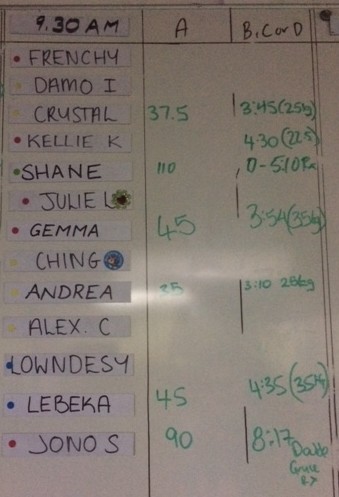 9.30 AM A B, C or D
FRENCHY
DAMO I
CRYSTAL 37.5 3:45 (25kg)
KELLIE K 4:30 (22.5)
SHANE 110 D-5:10 Rx
JULIE L
GEMMA 45 3:54 (35kg)
CHING
ANDREA 35 3:10 28kg
ALEX. C
LOWNDESY
LEBEKA 45 4:35 (35kg)
JONO S 90 8:17
Rx